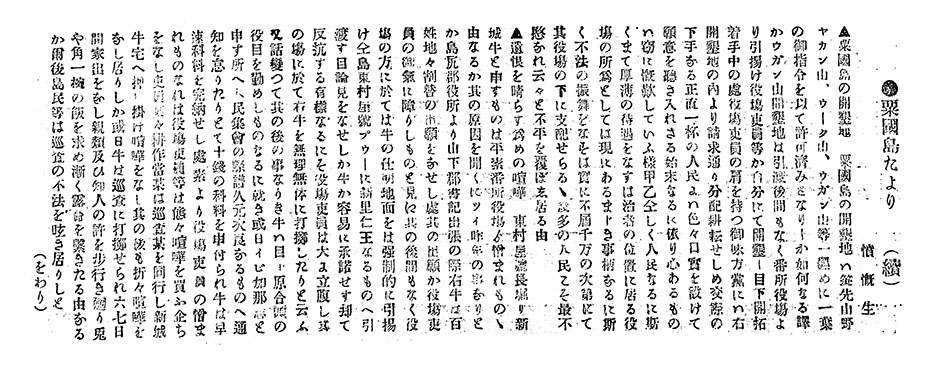 ◉粟國島たより (續)
憤慨生
▲粟國島の開墾地 粟國島の開墾地い從先山野
ヤカン山、ウータ山、ウガン山等一纒めに一葉
の御指令を以て許可濟みとなりしか如何なる譯
かウガン山開墾地は引渡後間もなく番所役塲よ
り引揚け役塲吏員等か自分にて開墾し目下開拓
着手中の處役塲吏員の肩を持つ御味方黨にい右
開墾地の内より請求通り分配耕耘せしめ交際の
下手なる正直一杯の人民よい色々口實を設けて
願意を聽き入れさる始末なるに依り心あるもの
い窃に慨歎していふ樣甲乙全しく人民なるに斯
くまて厚薄の待遇をなすは治者の位置に居る役
塲の所爲としては現にあるましき事柄なるに斯
く不法の振舞をなせるは實に不屆千万の次第にて
其役塲の下に支配せらるゝ設多の人民こそ最不
愍なれ云々と不平を覆ほゑ居る由
▲遺恨を晴らす爲めの喧嘩 東村屋號長堀り新
城牛と申すものは平素番所役塲よ憎まれものゝ
由なるか其の原因を聞くにツイ昨年の事なりと
か島尻郡役所より山下郡書記出張の際右牛は百
姓地々割替の出願をなせし處其の出願か役塲吏
員の御氣に障りしものと見に其の後間もなく役
塲の方に於ては牛の仕明地面をは強制的に引揚
け仝島東村屋號プゥーに新里仁王なるものへ引
渡す目論見をなせしか牛か容易に承諾せす却て
反抗する有樣なるにそ役塲吏員は大よ立腹し其
の塲に於て右牛を無理無体に打擲したりと云ふ
又話變つて其の後の事なりき牛い目下原合頭の
役目を勤めしものなるに就き或日イビ加那志と
申す所へ人民集會の際諸人元次良なるものへ通
知を怠りたりとて十錢の科料を申付られ牛は早
速科料を完納せし處素より役塲吏員の憎ま
れものなれは役塲吏員等は態々喧嘩を買ふ企ち
をなし吏員某々耕作當某は巡査某を同行し新城
牛宅へ押し掛け喧嘩をなし其の後も折々喧嘩を
なし居りしか或日牛は巡査に打擲せられ六七日
間家出をなし親類及ひ知人の許を步行き廻り兎
や角一椀の飯を求め漸く露命を繫きたる由なる
か爾後島民等は巡査の不法を呟き居りしと
(をわり)